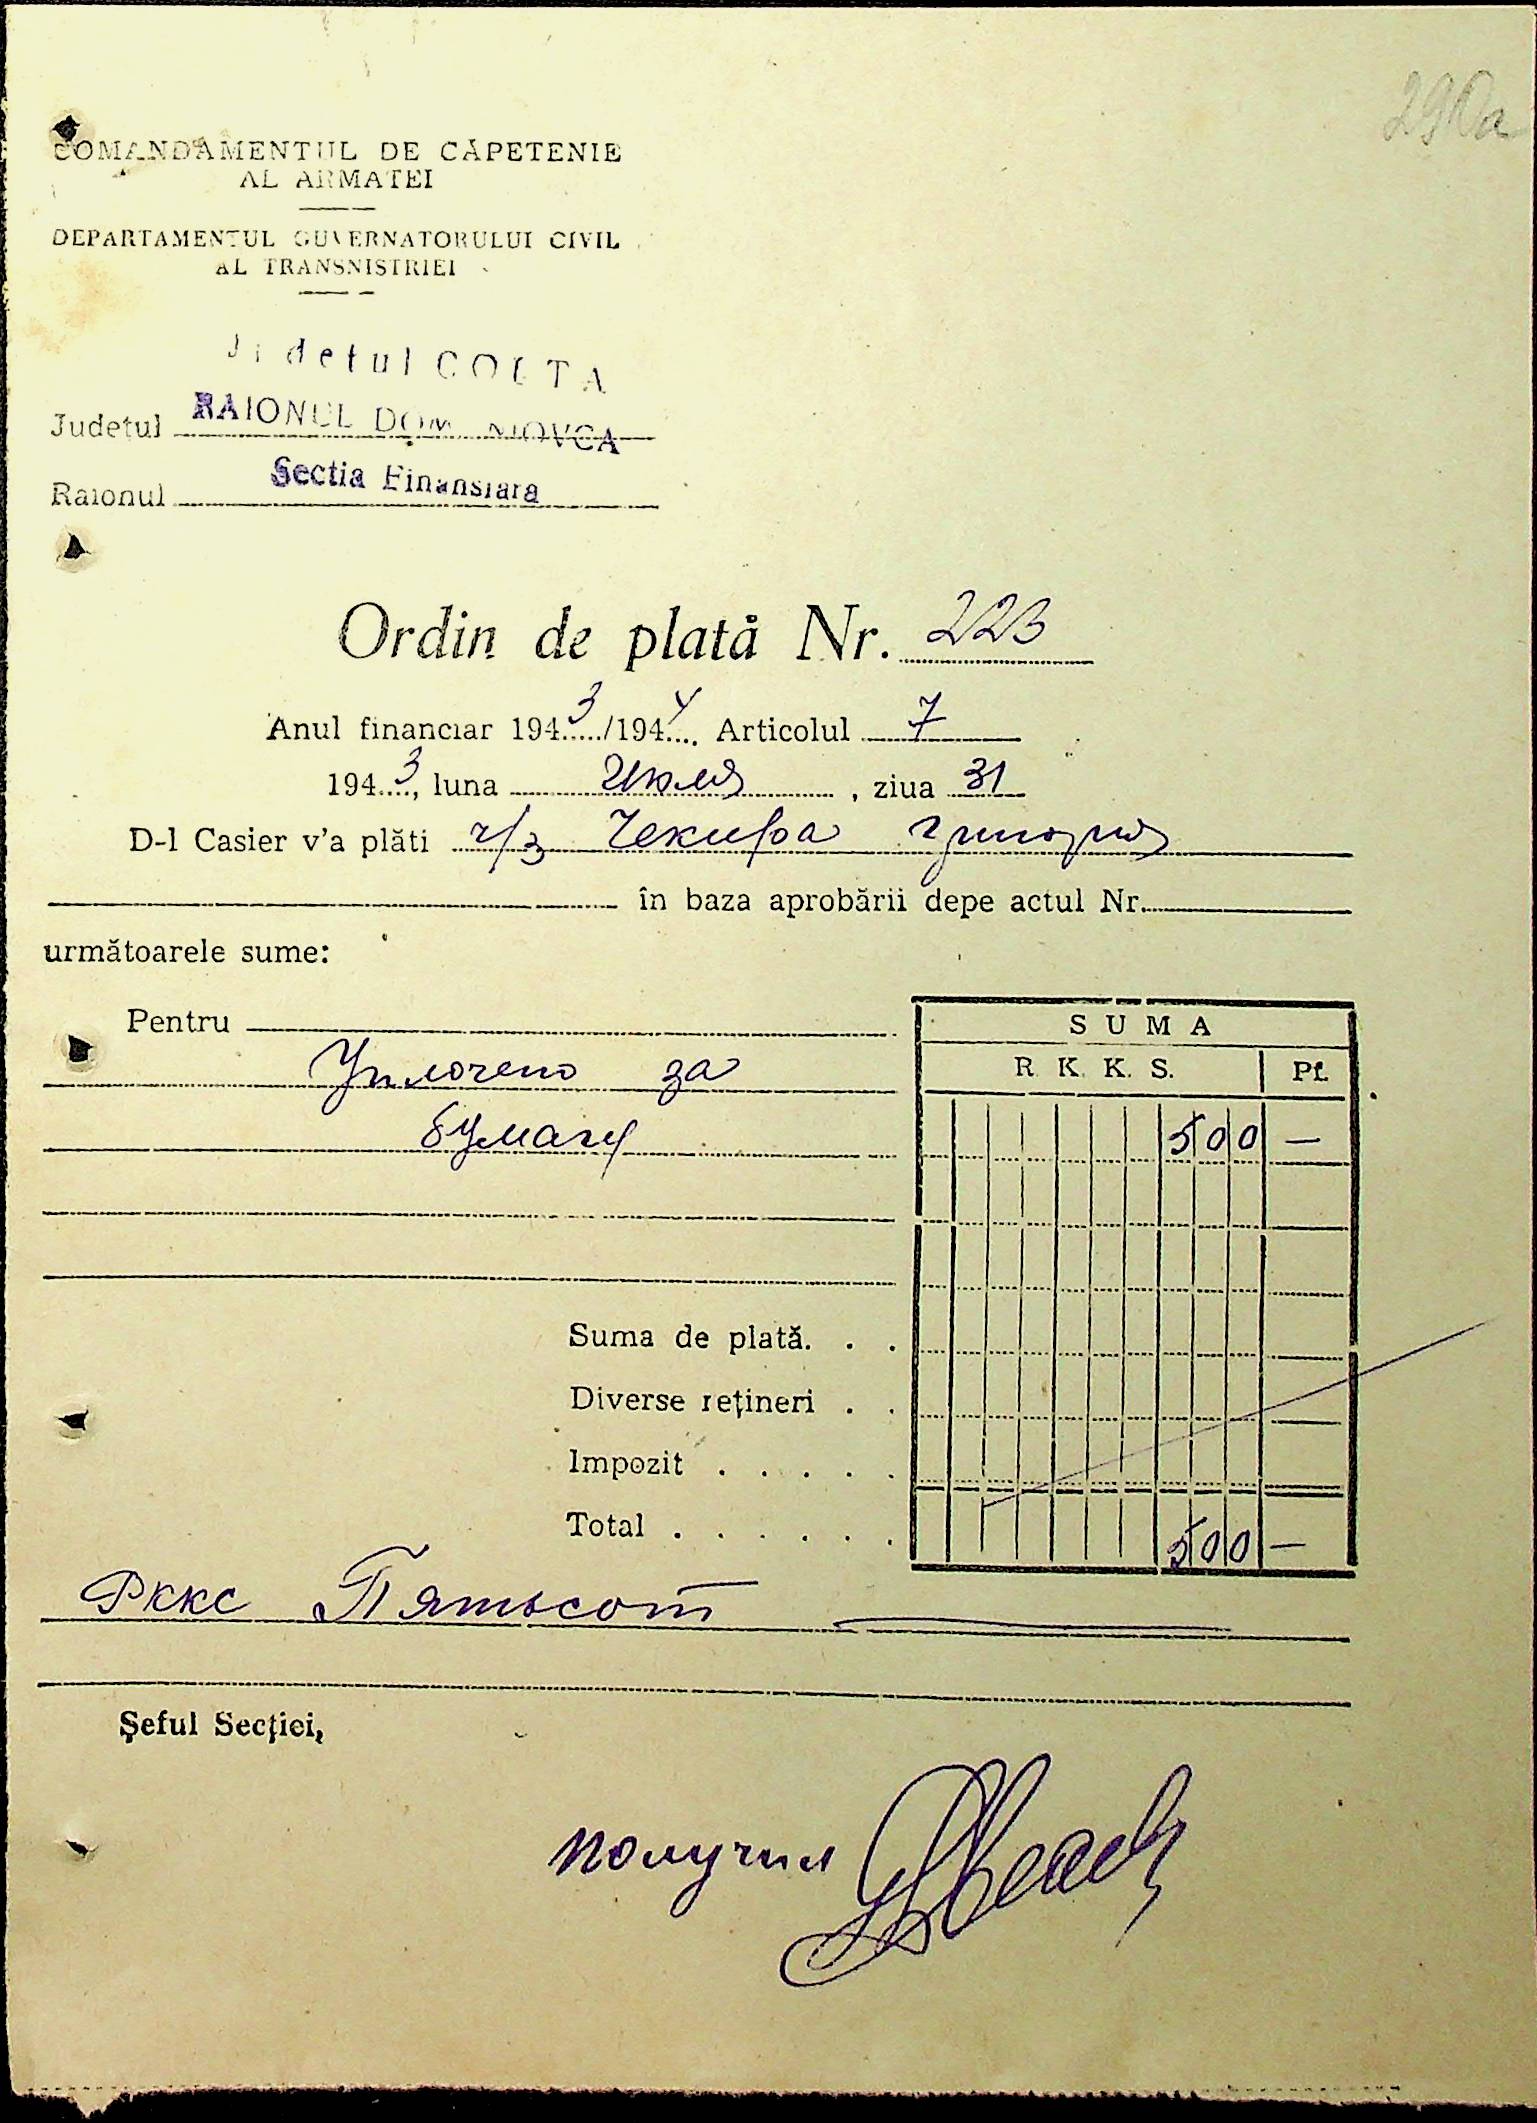 290а
COMANDAMENTUL DE CĂPETENIE
AL ARMATEI
DEPARTAMENTUL GUVERNATORULUI CIVIL
AL TRANSNISTRIEI
Judetul GOLTA
Judetul RAIONUL DOMANIOVCA
Raionul Sectia Finansiara
Ordin de plată Nr. 223
Anul financiar 1943/1944 Articolul 7
1943, luna Июля, ziua 31
D-l Casier v'a plăti ч/з Чекира Григория
în baza aprobării depe actul Nr.
următoarele sume:
Pentru
Уплочено за
бумагу
SUMA
R. K. K. S. Pf.
500 —
Suma de plată. . .
Diverse rețineri . .
Impozit . . . . .
Total . . . . . . 500 —
Рккс Пятьсот
Șeful Secției,
получил